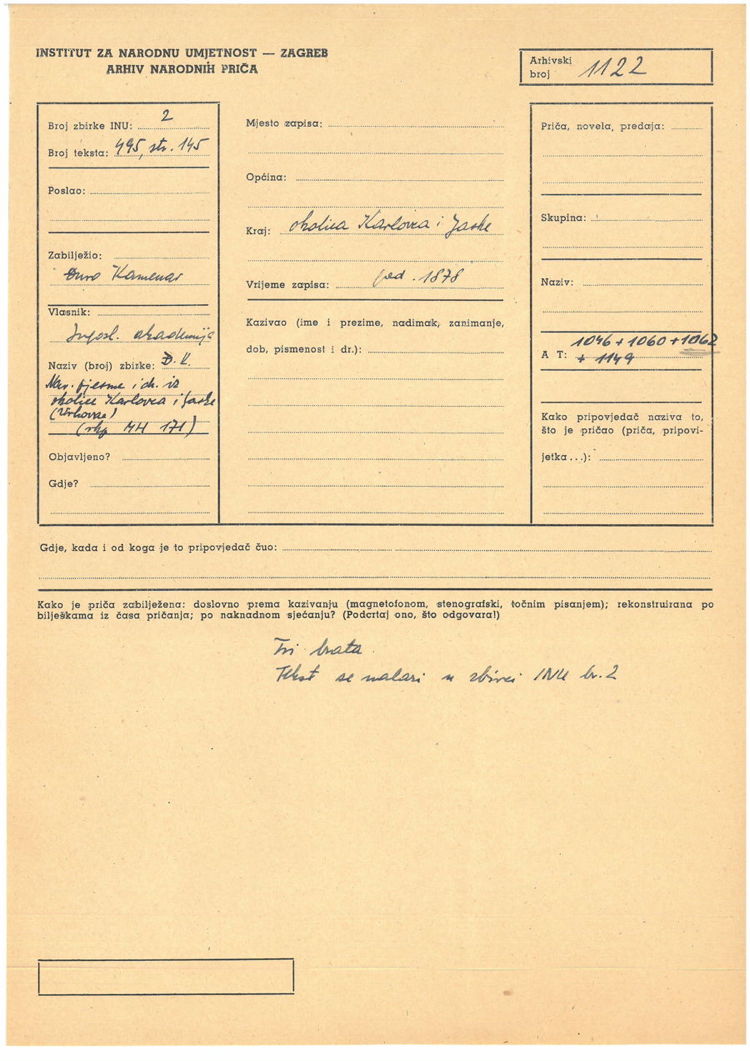 INSTITUT ZA NARODNU UMJETNOST — ZAGREB
ARHIV NARODNIH PRIČA
Arhivski broj 1122
Broj zbirke INU: 2
Broj teksta: 495, str. 145
Poslao:
Zabilježio:
Đuro Kamenar
Vlasnik:
Jugosl. akademija
Naziv (broj) zbirke: Đ. K.
Nar. pjesme i dr. iz
okolice Karlovca i Jaske
(Vrhovac)
(rkp MH 171)
Objavljeno?
Gdje?
Mjesto zapisa:
Općina:
Kraj: okolica Karlovca i Jaske
Vrijeme zapisa: god. 1878
Kazivao (ime i prezime, nadimak, zanimanje,
dob, pismenost i dr.):
Priča, novela, predaja:
Skupina:
Naziv:
A T: 1046 + 1060 + 1062
+ 1149
Kako pripovjedač naziva to,
što je pričao (priča, pripovi-
jetka...):
Gdje, kada i od koga je to pripovjedač čuo:
Kako je priča zabilježena: doslovno prema kazivanju (magnetofonom, stenografski, točnim pisanjem); rekonstruirana po
bilješkama iz časa pričanja; po naknadnom sjećanju? (Podcrtaj ono, što odgovara!)
Tri brata.
Tekst se nalazi u zbirci INU br. 2